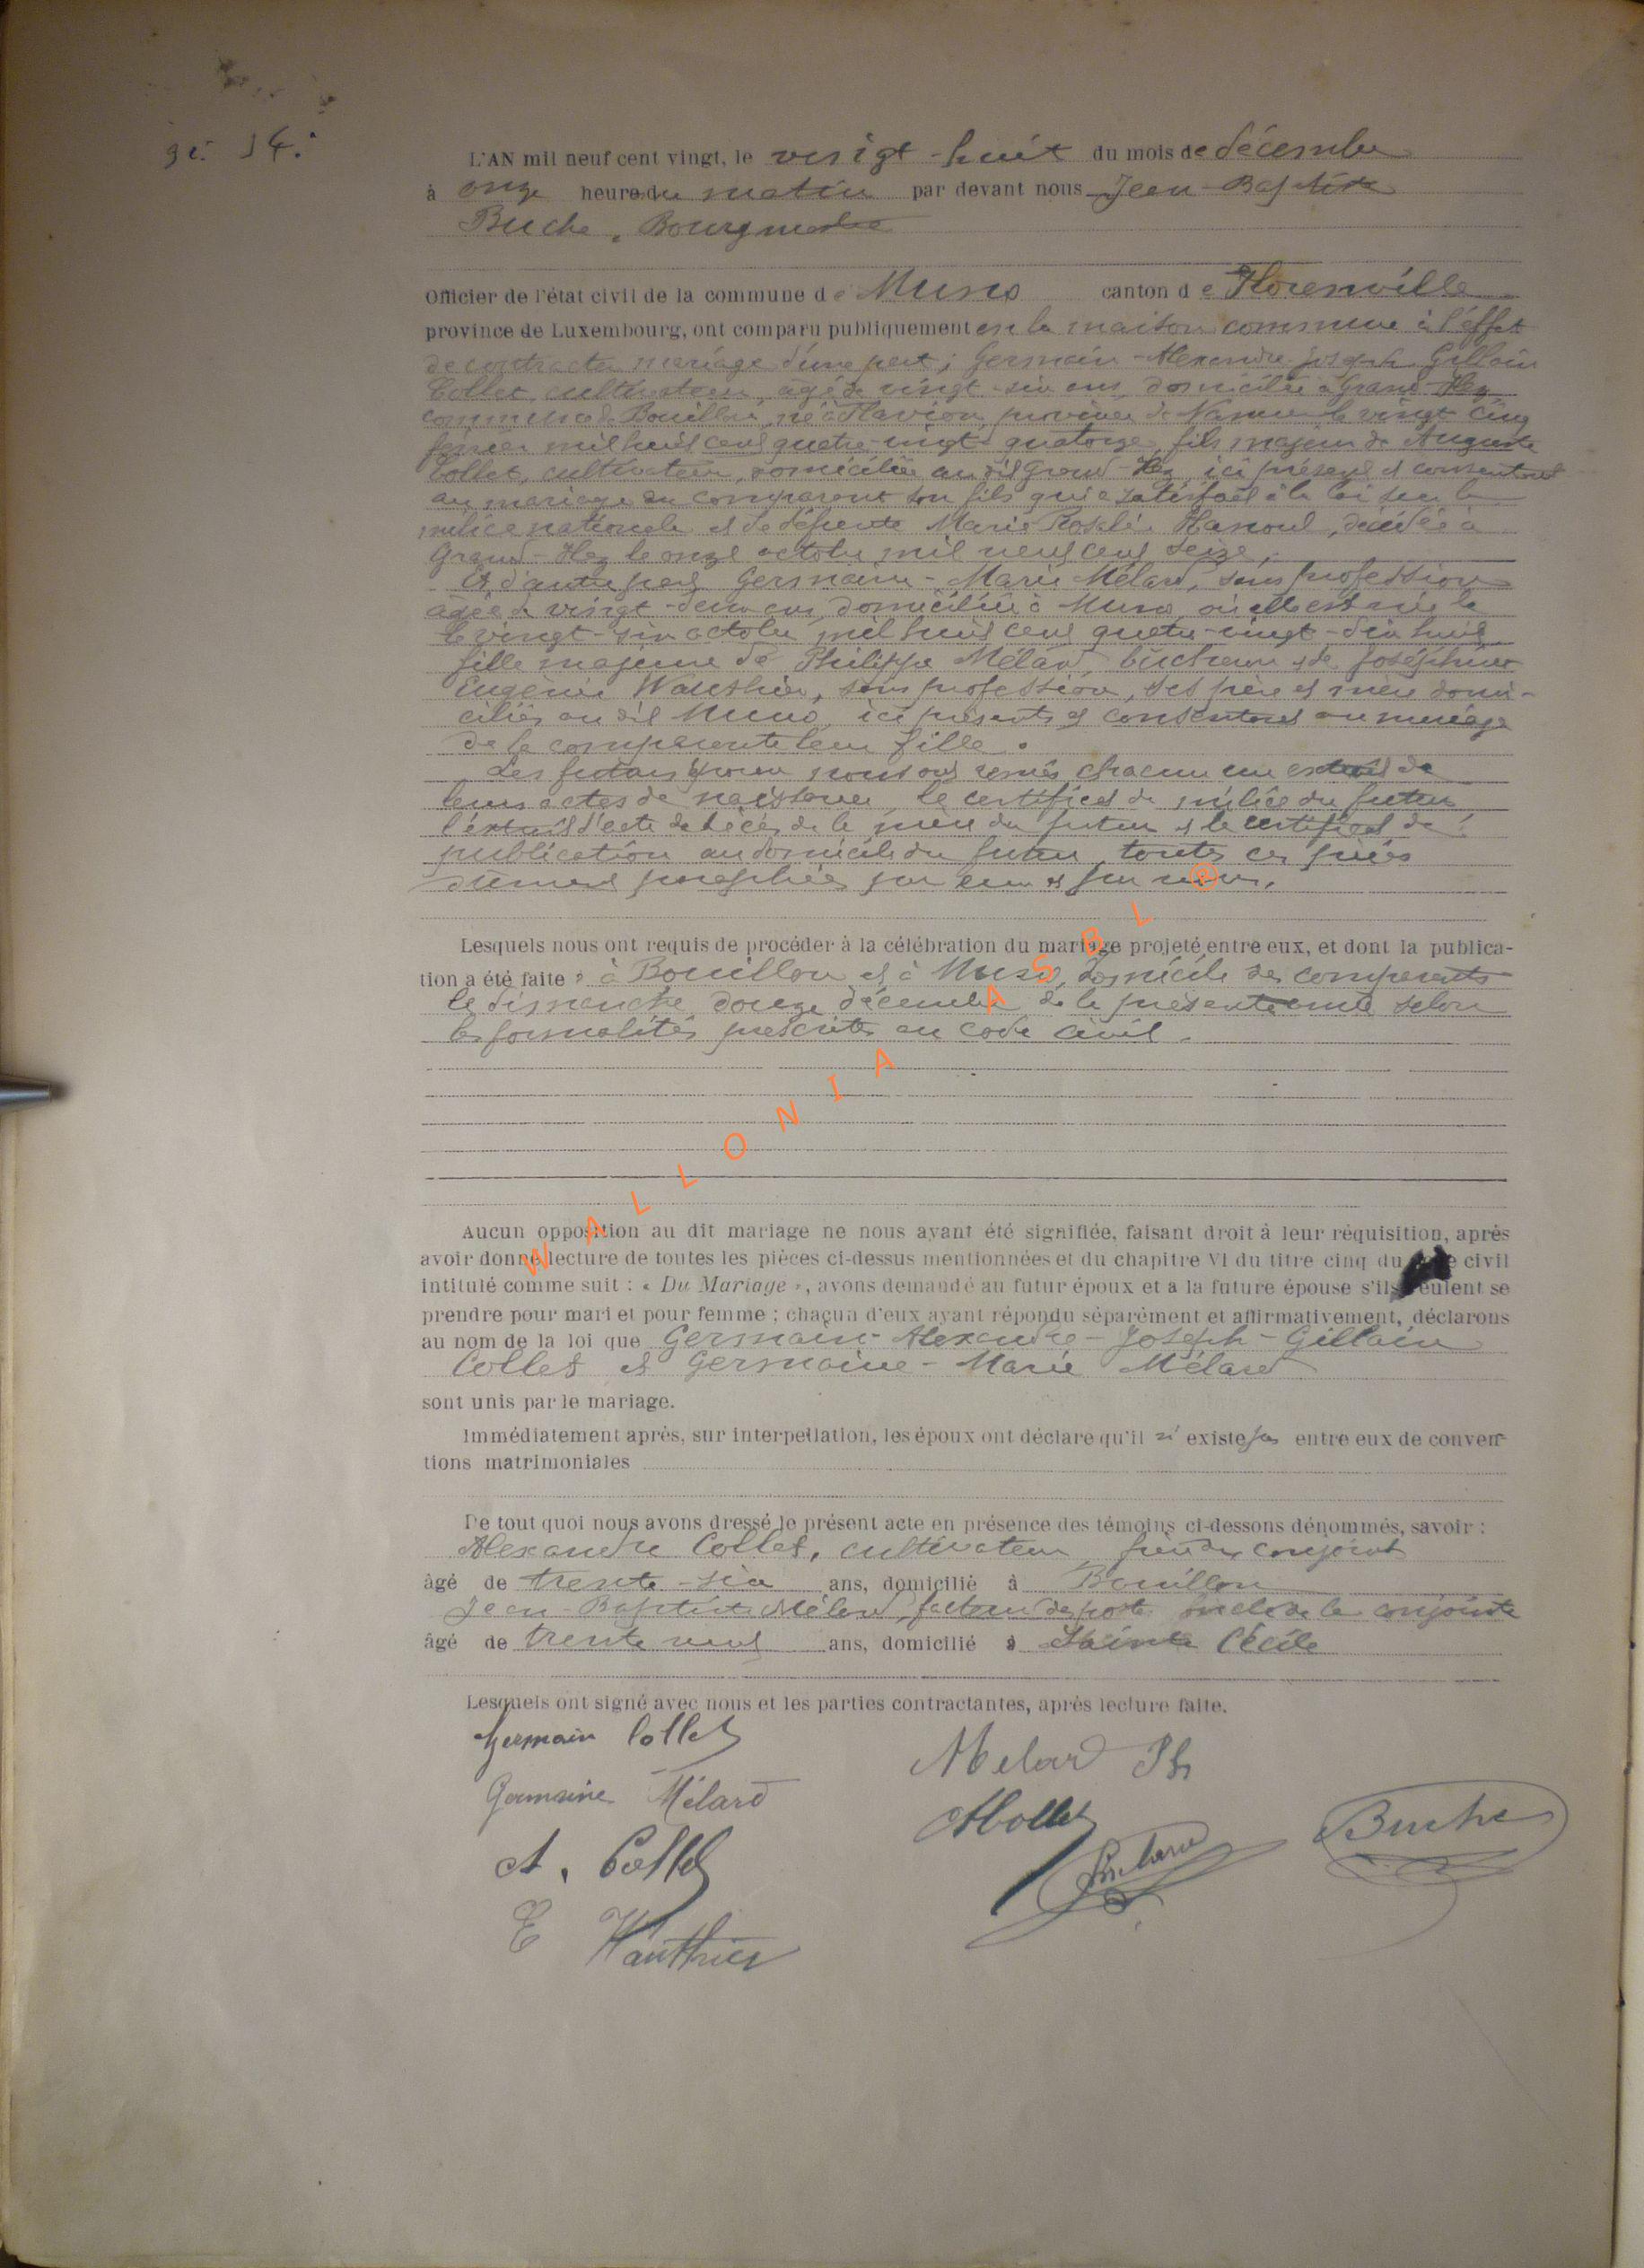 14.
L'AN mil neuf cent vingt, le vingt-huit du mois de décembre
à onze heures du matin par devant nous Jean-Baptiste
Buche, Bourgmestre
Officier de l'état civil de la commune de Muno canton de Florenville
province de Luxembourg, ont comparu publiquement en la maison commune à l'effet
de contracter mariage d'une part; Germain-Alexandre-Joseph-Gillain
Collet, cultivateur, âgé de vingt-six ans, domicilié à Grand-Hez
commune de Bouillon, né à Flavion, province de Namur le vingt cinq
février mil huit cent quatre-vingt quatorze, fils majeur de Auguste
Collet, cultivateur, domicilié au dit Grand-Hez, ici présent et consentant
au mariage du comparant son fils qui a satisfait à la loi sur la
milice nationale et de défunte Marie Rosalie Hanoul, décédée à
Grand-Hez le onze octobre mil neuf cent seize.
Et d'autre part Germaine-Marie Mélard, sans profession
âgée de vingt-deux ans, domiciliée à Muno, où elle est née le
le vingt-six octobre mil huit cent quatre-vingt-dix huit
fille majeure de Philippe Mélard, bûcheron et de Joséphine
Eugénie Wauthier, sans profession, ses père et mère domi-
ciliés au dit Muno, ici présents et consentant au mariage
de la comparante leur fille.
Les futurs époux nous ont remis chacun un extrait de
leurs actes de naissance, le certificat de milice du futur
l'extrait d'acte de décès de la mère du futur et le certificat de
publication au domicile du futur, toutes ces pièces
dûment paraphées par eux et par nous.
Lesquels nous ont requis de procéder à la célébration du mariage projeté entre eux, et dont la publica-
tion a été faite à Bouillon et à Muno, domicile des comparants
le dimanche douze décembre de la présente année selon
les formalités prescrites au code civil.
WALLONIA ASBL ®
Aucun opposition au dit mariage ne nous ayant été signifiée, faisant droit à leur réquisition, après
avoir donné lecture de toutes les pièces ci-dessus mentionnées et du chapitre VI du titre cinq du civil
intitulé comme suit : « Du Mariage », avons demandé au futur époux et a la future épouse s'ils veulent se
prendre pour mari et pour femme ; chaçun d'eux ayant répondu séparément et affirmativement, déclarons
au nom de la loi que Germain-Alexandre-Joseph-Gillain
Collet et Germaine-Marie Mélard
sont unis par le mariage.
Immédiatement après, sur interpellation, les époux ont déclare qu'il n'existe pas entre eux de conven-
tions matrimoniales
De tout quoi nous avons dressé le présent acte en présence des témoins ci-dessons dénommés, savoir :
Alexandre Collet, cultivateur, frère du conjoint
âgé de trente-six ans, domicilié à Bouillon
Jean-Baptiste Mélard, facteur des postes oncle de la conjointe
âgé de trente neuf ans, domicilié à Sainte Cécile
Lesquels ont signé avec nous et les parties contractantes, après lecture faite.
Germain Collet
Melard Ph
Germaine Mélard
ACollet
Buche
A. Collet
E Wauthier